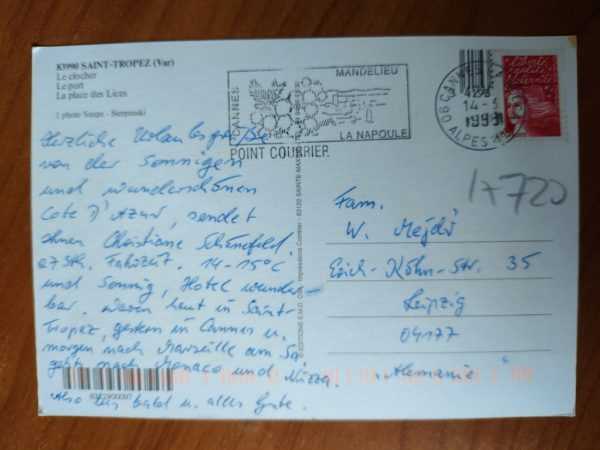 83990 SAINT-TROPEZ (Var)
Le clocher
Le port
La place des Lices
1 photo Sespe - Sierpinski
Herzliche Urlaubsgrüße
von der Sonnigen
und wunderschönen
Cote D'Azur, sendet
Ihnen Christiane Schönefeld.
27 Sth. Fahrzeit. 14-15°C
und Sonnig, Hotel wunder
bar. Waren heut in Saint-
Tropez, gestern in Cannes u.
morgen nach Marseille am Sa
gehts nach Monaco und Nizza.
Also bis bald u. alles Gute.
CANNES
MANDELIEU
LA NAPOULE
POINT COURRIER
06 CANNES
14 -
199
ALPES
Liberté
égalité
fraternité
17720
Fam.
W.
Erich-Köhn-Str. 35
Leipzig
04177
Alemania
© EDITIONS S.M.D. - Impressions Combier - 83120 SAINTE-MAXIME